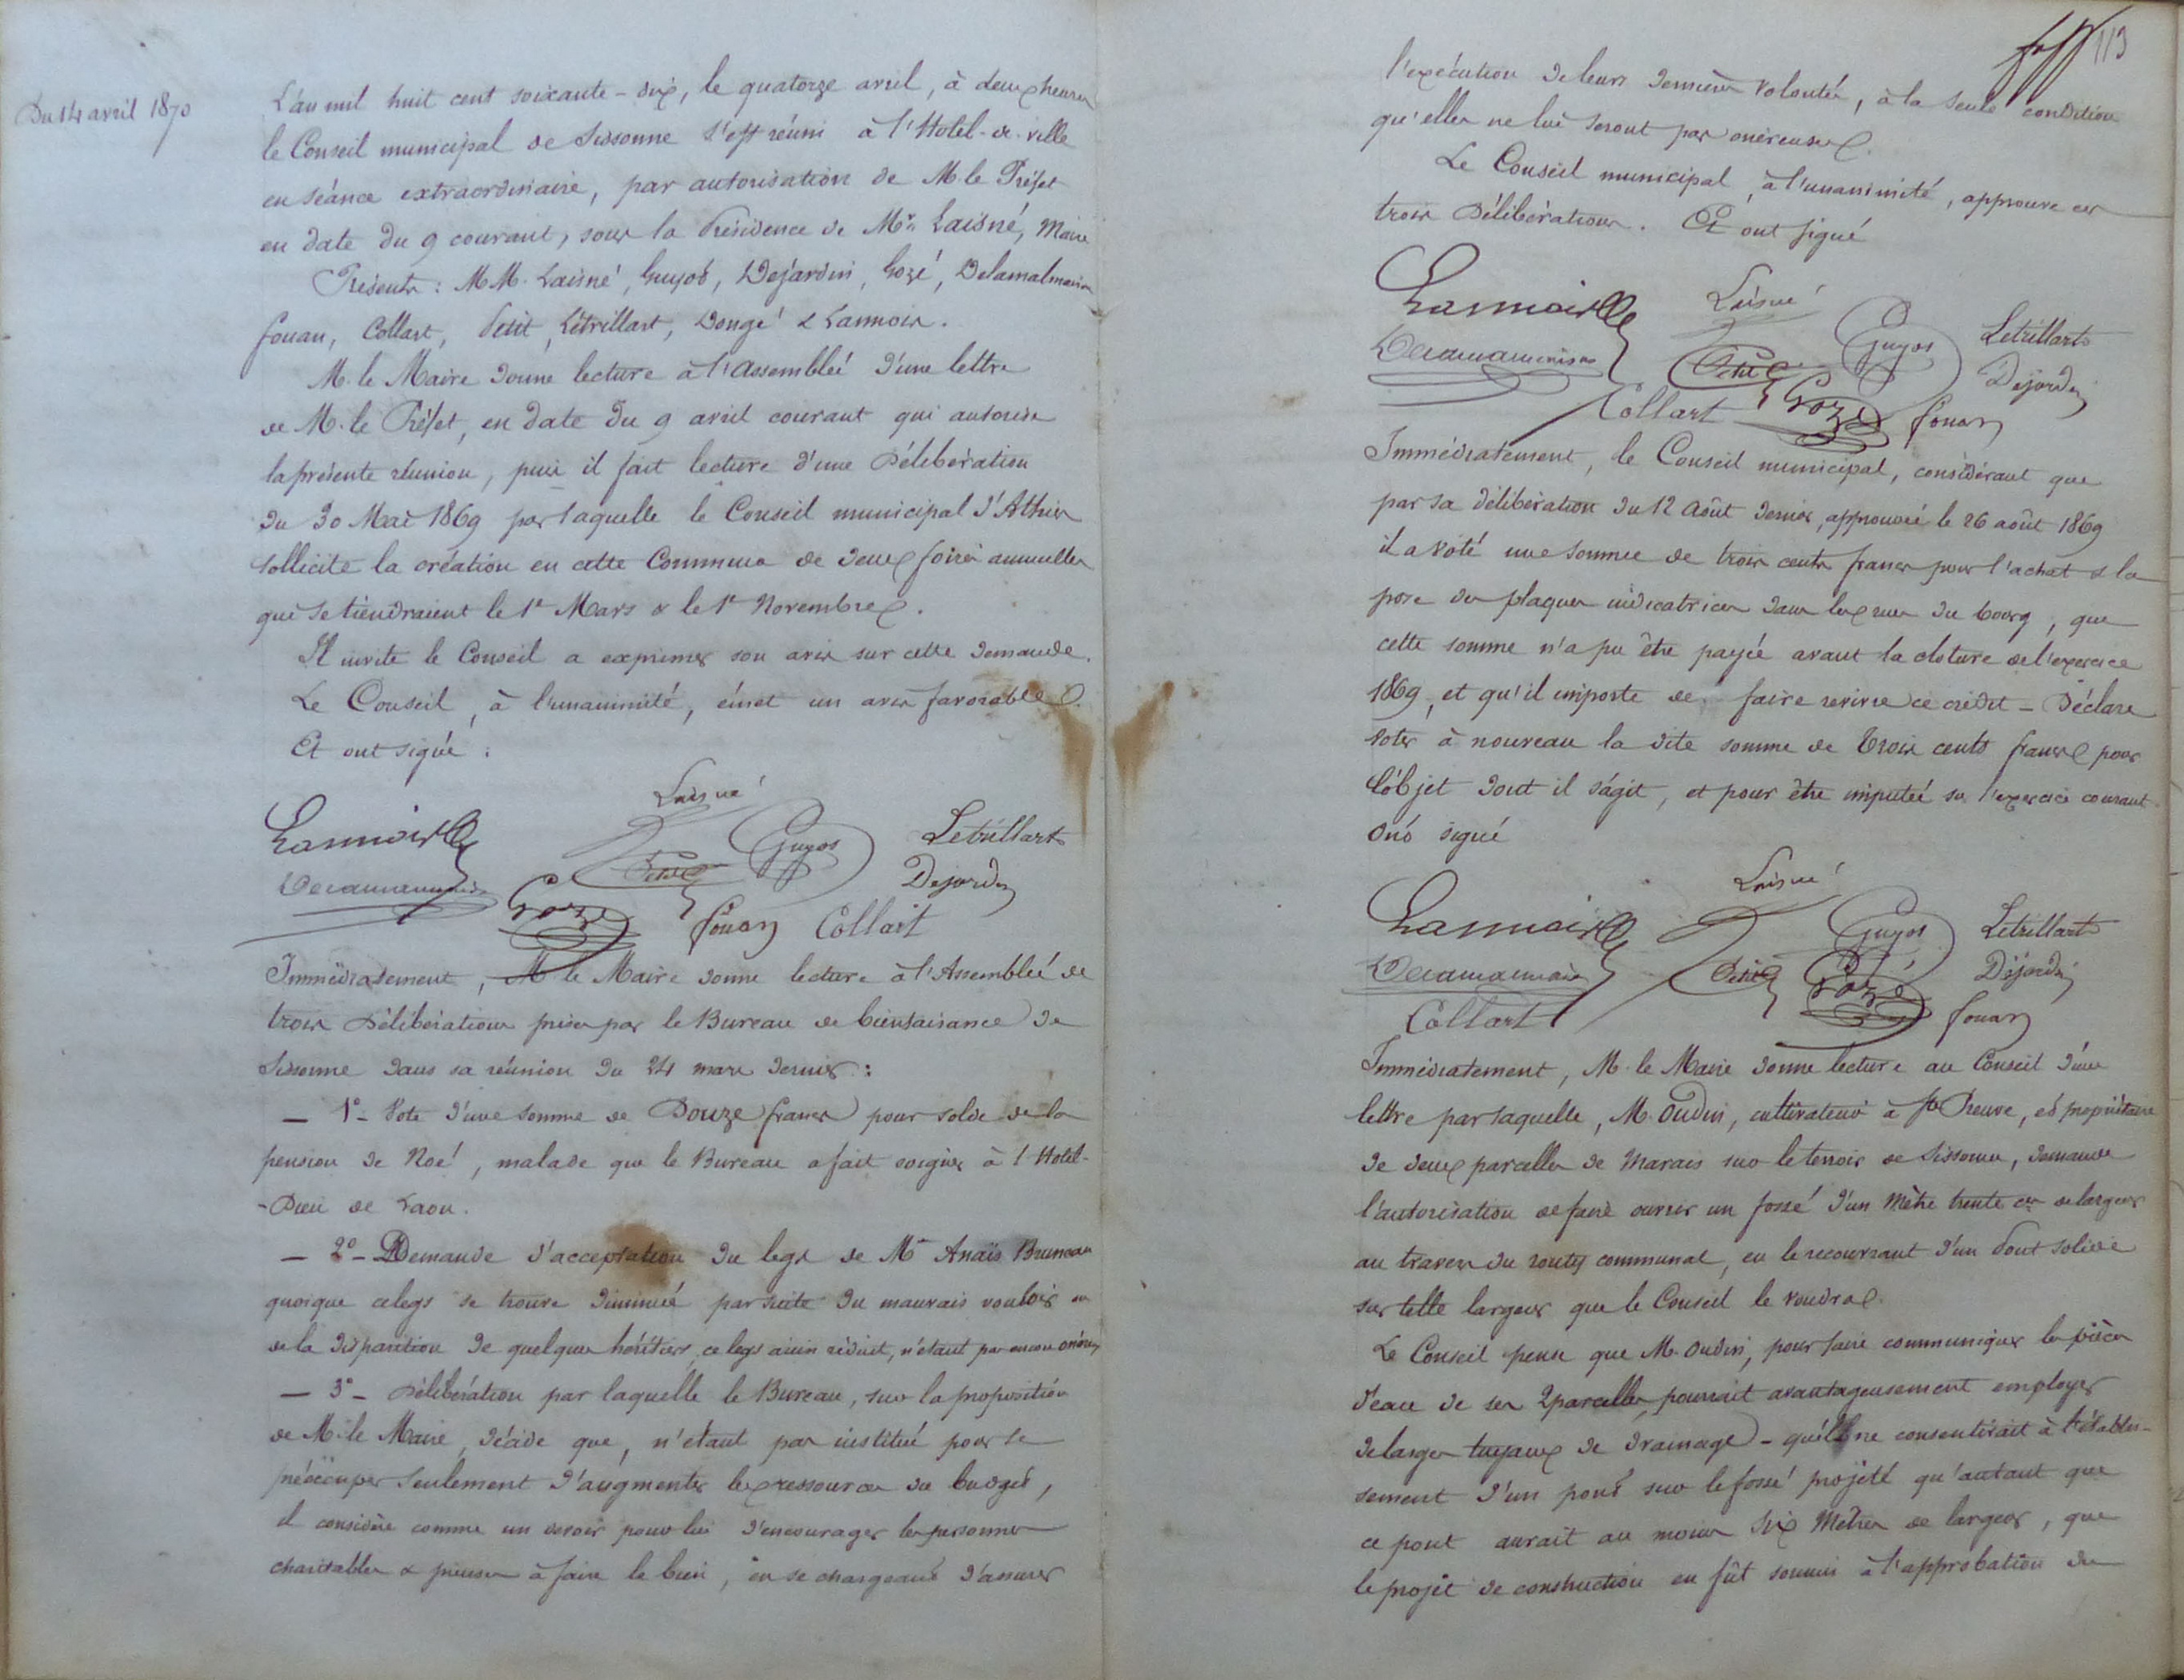 Du 14 avril 1870
L'an mil huit cent soixante-dix, le quatorze avril, à deux heures
le Conseil municipal de Sissonne s'est réuni à l'Hotel-de-ville
en séance extraordinaire, par autorisation de M le Préfet
en date du 9 courant, sous la Présidence de Mr. Laisné, Maire
Présents : M M. Laisné, Guyot, Dejardin, Gozé, Delamalmaison
fouan, Collart, Petit, Létrillart, Dongé & Lannois.
M. le Maire donne lecture à l'Assemblée d'une lettre
de M. le Préfet, en date du 9 avril courant qui autorise
la présente réunion, puis il fait lecture d'une Délibération
du 30 Mai 1869 par laquelle le Conseil municipal d'Athies
sollicite la création en cette Commune de deux foires annuelles
qui se tiendraient le 1er Mars & le 1er Novembre.
Il invite le Conseil a exprimer son avis sur cette demande.
Le Conseil, à l'unanimité, émet un avis favorable.
Et ont signé :
Laisné
Lannois Guyot Letrillart
Delamalmaison Petit Dejardin
Gozé fouan Collart
Immédiatement, M le Maire donne lecture à l'Assemblée de
trois Délibérations prises par le Bureau de bienfaisance de
Sissonne dans sa réunion du 24 mars dernier :
— 1°- Vote d'une somme de Douze francs pour solde de la
pension de Noé, malade que le Bureau a fait soigner à l'Hotel-
-Dieu de Laon.
— 2°- Demande d'acceptation du legs de Me Anaïs Bruneau
quoique ce legs se trouve diminué par suite du mauvais vouloir ou
de la disparition de quelques héritiers, ce legs ainsi réduit, n'étant pas encore onéreux
— 3°- Délibération par laquelle le Bureau, sur la proposition
de M. le Maire, décide que, n'étant pas institué pour se
préoccuper seulement d'augmenter les ressources du budget,
il considère comme un devoir pour lui d'encourager les personnes
charitables & pieuses à faire le bien, en se chargeant d'assurer
113
l'exécution de leurs dernières volontés, à la seule condition
qu'elles ne lui seront pas onéreuses.
Le Conseil municipal, à l'unanimité, approuve ces
trois Délibérations. Et ont signé
Lannois Laisné Guyot Letrillart
Delamalmaison Petit Dejardin
Collart Gozé fouan
Immédiatement, le Conseil municipal, considérant que
par sa délibération du 12 Août dernier, approuvée le 26 août 1869
il a voté une somme de trois cents francs pour l'achat & la
pose des plaques indicatrices dans les rues du bourg, que
cette somme n'a pu être payée avant la cloture de l'exercice
1869, et qu'il importe de faire revivre ce crédit – Déclare
voter à nouveau la dite somme de trois cents francs pour
l'objet dont il s'agit, et pour être imputée sur l'exercice courant
Ont signé
Laisné
Lannois Guyot Letrillart
Delamalmaison Petit Gozé Dejardin
Collart fouan
Immédiatement, M. le Maire donne lecture au Conseil d'une
lettre par laquelle, M. Oudin, cultivateur à Ste Preuve, et propriétaire
de deux parcelles de Marais sur le terroir de Sissonne, demande
l'autorisation de faire ouvrir un fossé d'un Mètre trente cm de largeur
au travers du routy communal, en le recouvrant d'un Pont solide
sur telle largeur que le Conseil le voudra.
Le Conseil pense que M. Oudin, pour faire communiquer les pièces
d'eau de ses 2 parcelles, pourrait avantageusement employer
de larges tuyaux de drainage – qu'il ne consentirait à l'établis-
sement d'un pont sur le fossé projeté qu'autant que
ce pont aurait au moins Six Mètres de largeur, que
le projet de construction en fût soumis à l'approbation du